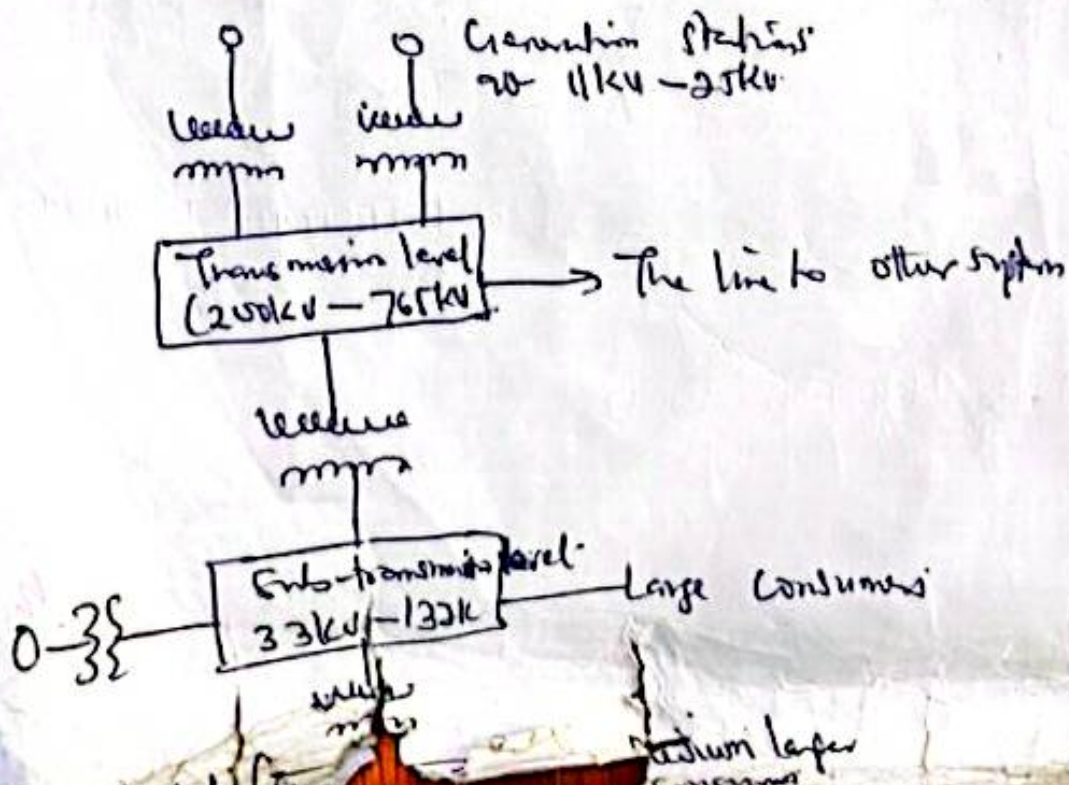 Generation Stations
11KV - 25KV
Transmission level
(200kV - 765kV
The line to other system
Sub-transmission level
33KV - 132K
Large Consumers
Medium larger